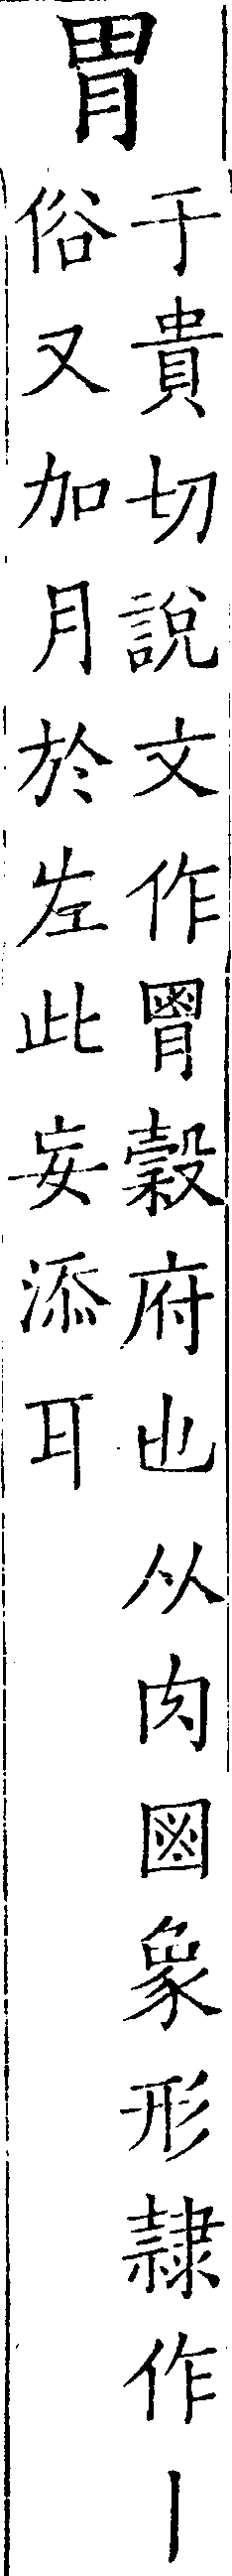 胃
于貴切說文作䏽穀府也从肉𡇒象形隷作丨
俗又加月於左此妄添耳